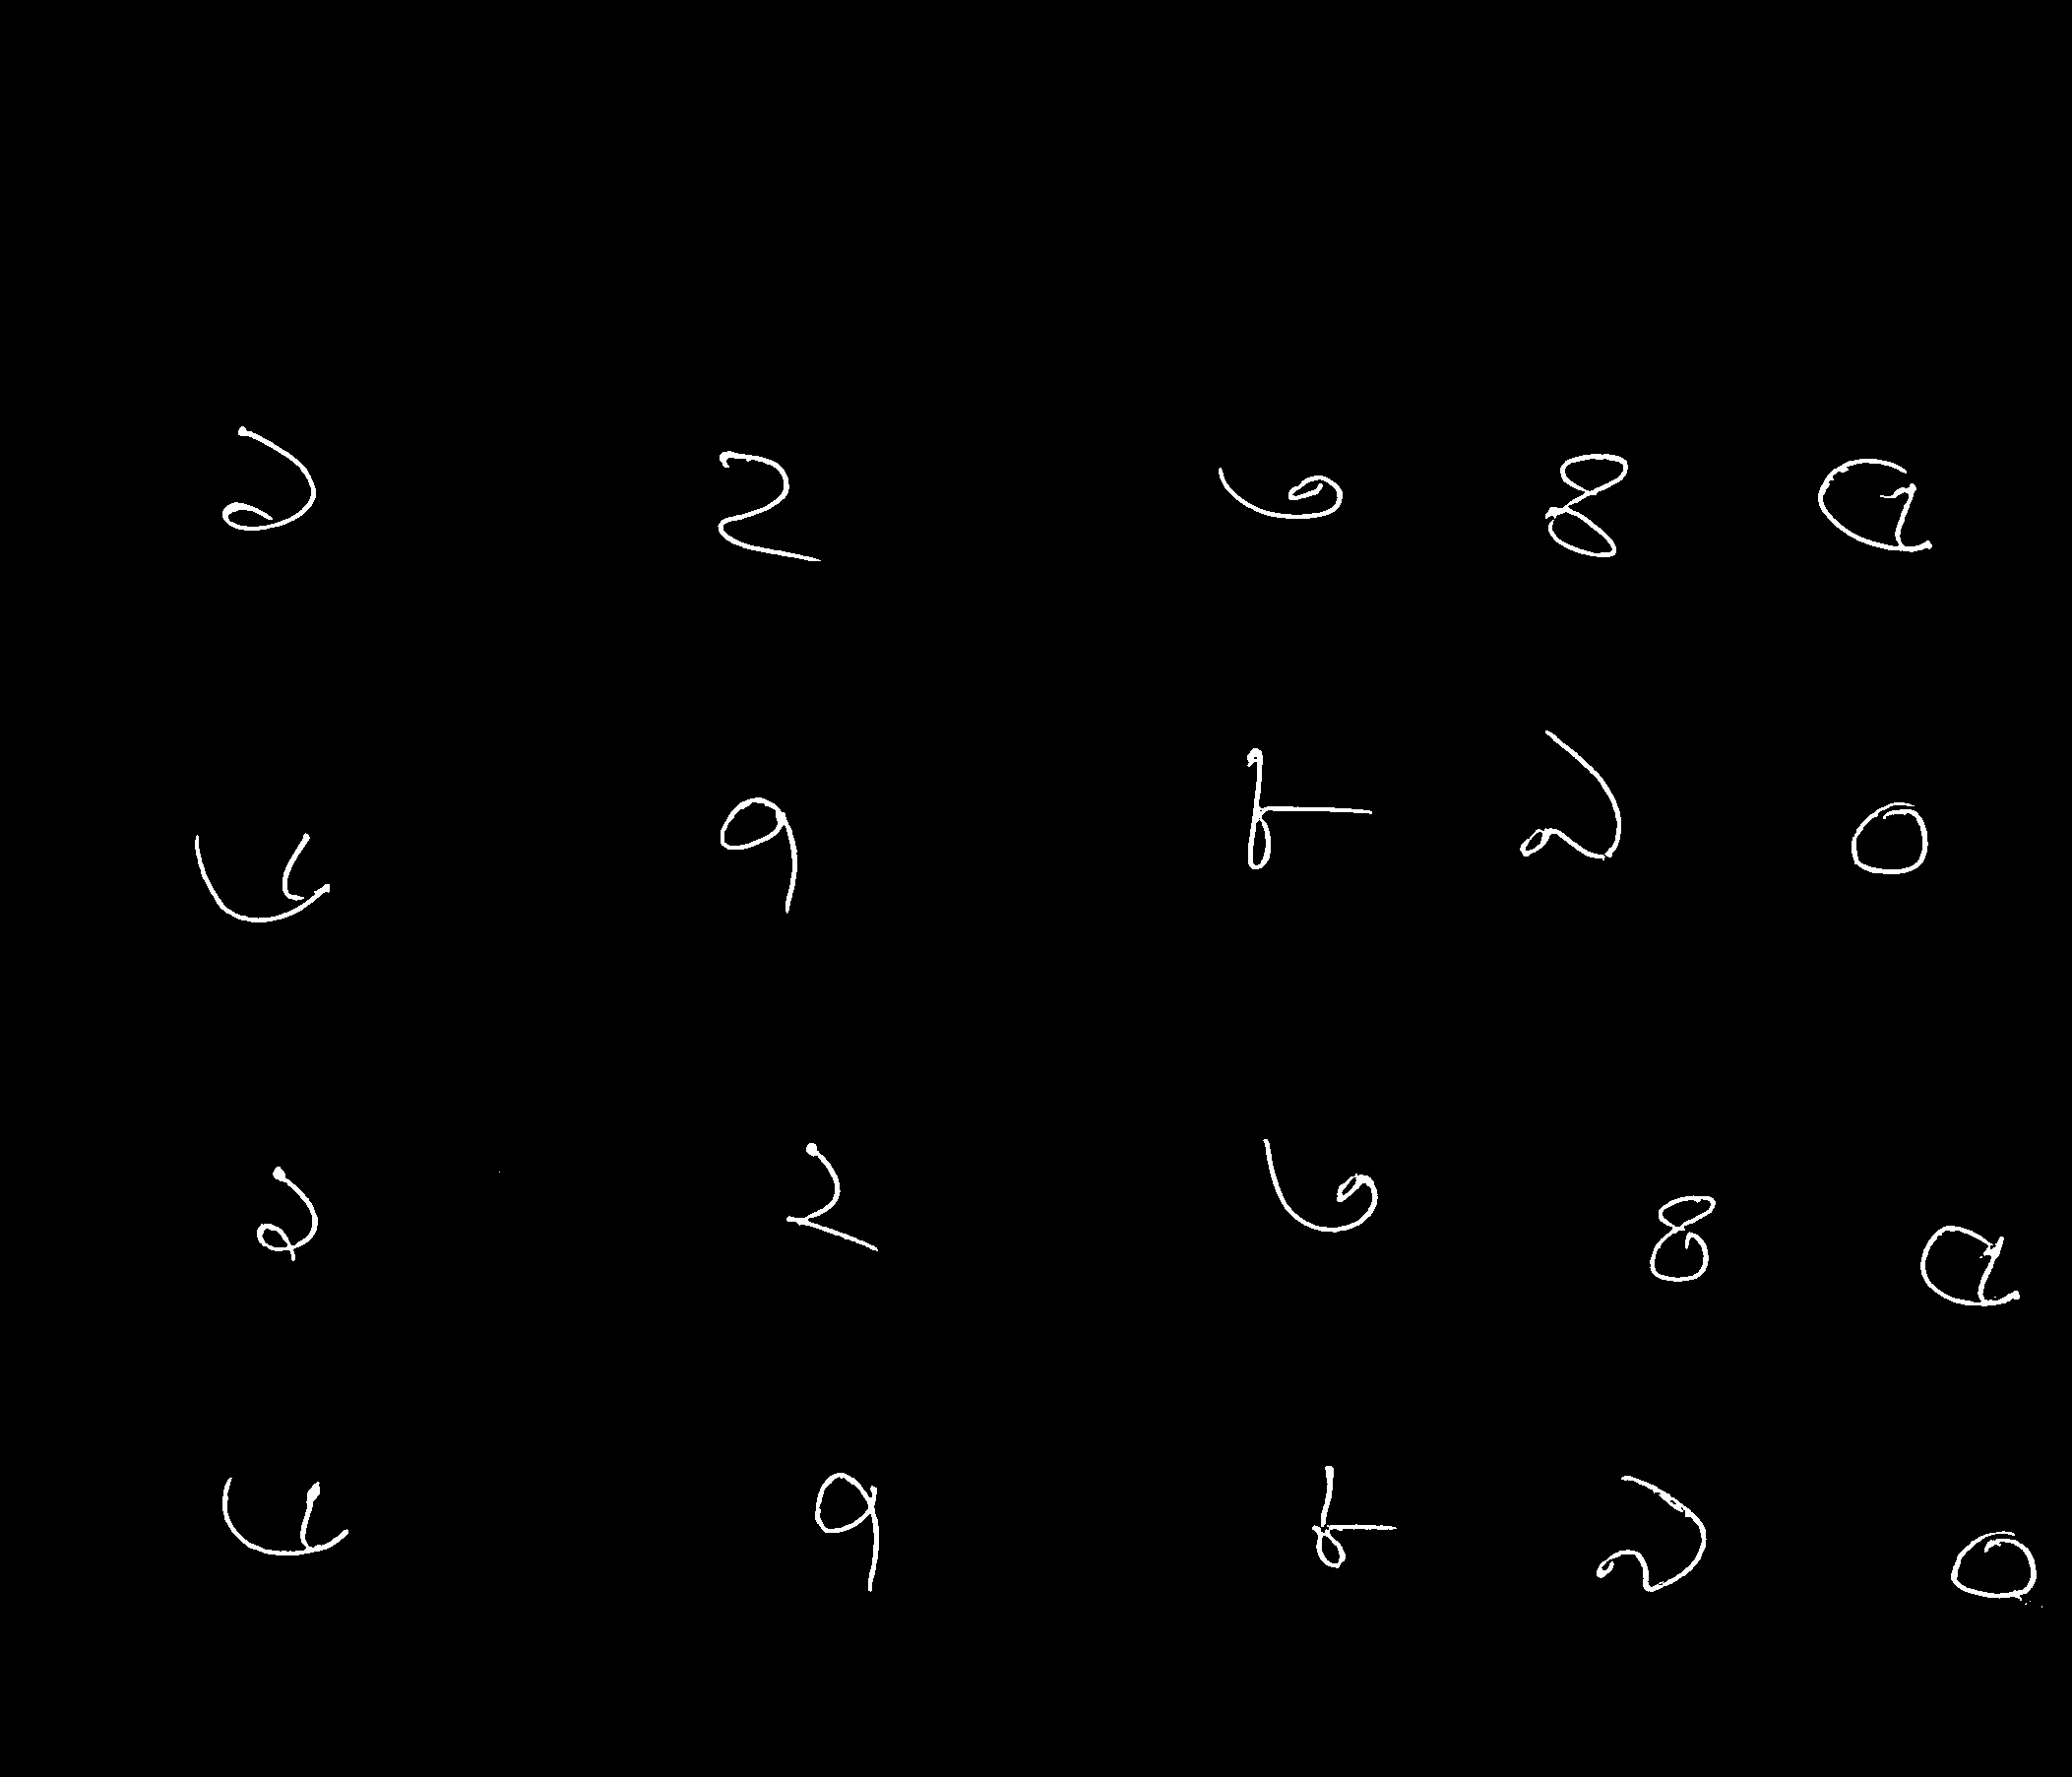 ১ ২ ৩ ৪ ৫
৬ ৭ ৮ ৯ ০
১ ২ ৩ ৪ ৫
৬ ৭ ৮ ৯ ০